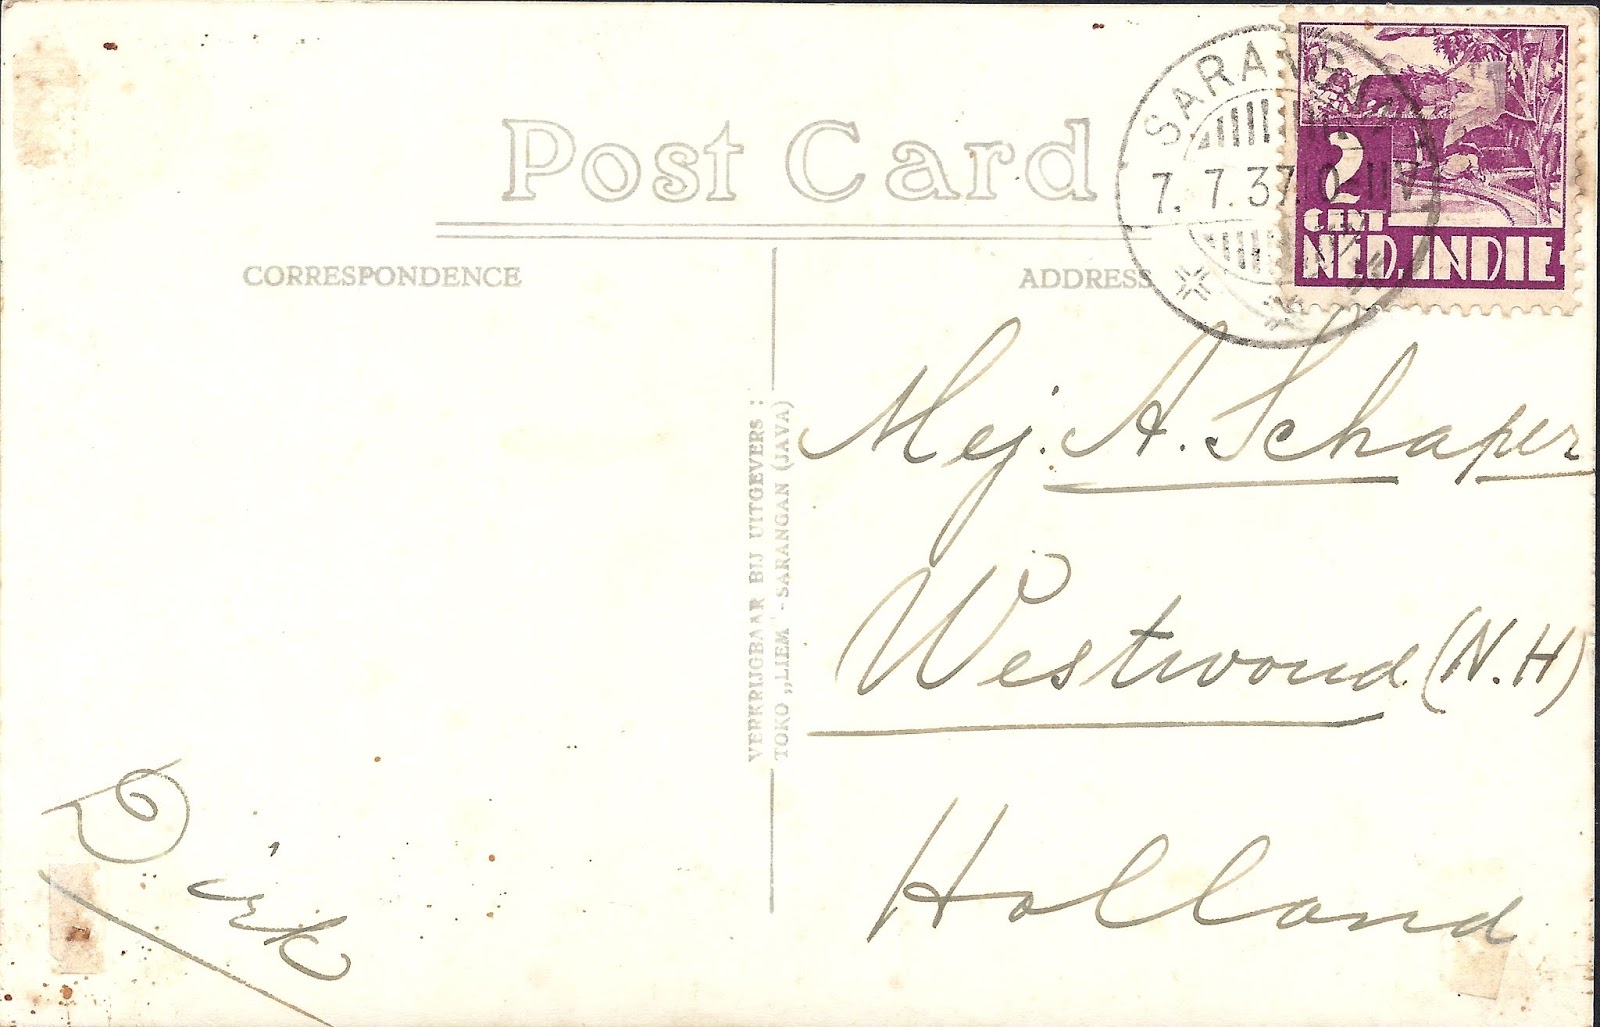 Post Card
CORRESPONDENCE
ADDRESS
SARANGAN
7. 7. 37
2
CENT
NED. INDIE
Mej. A. Schaper
Westwoud (N.H)
Holland
VERKRIJGBAAR BIJ UITGEVERS :
TOKO „LIEM" - SARANGAN (JAVA)
Dirk